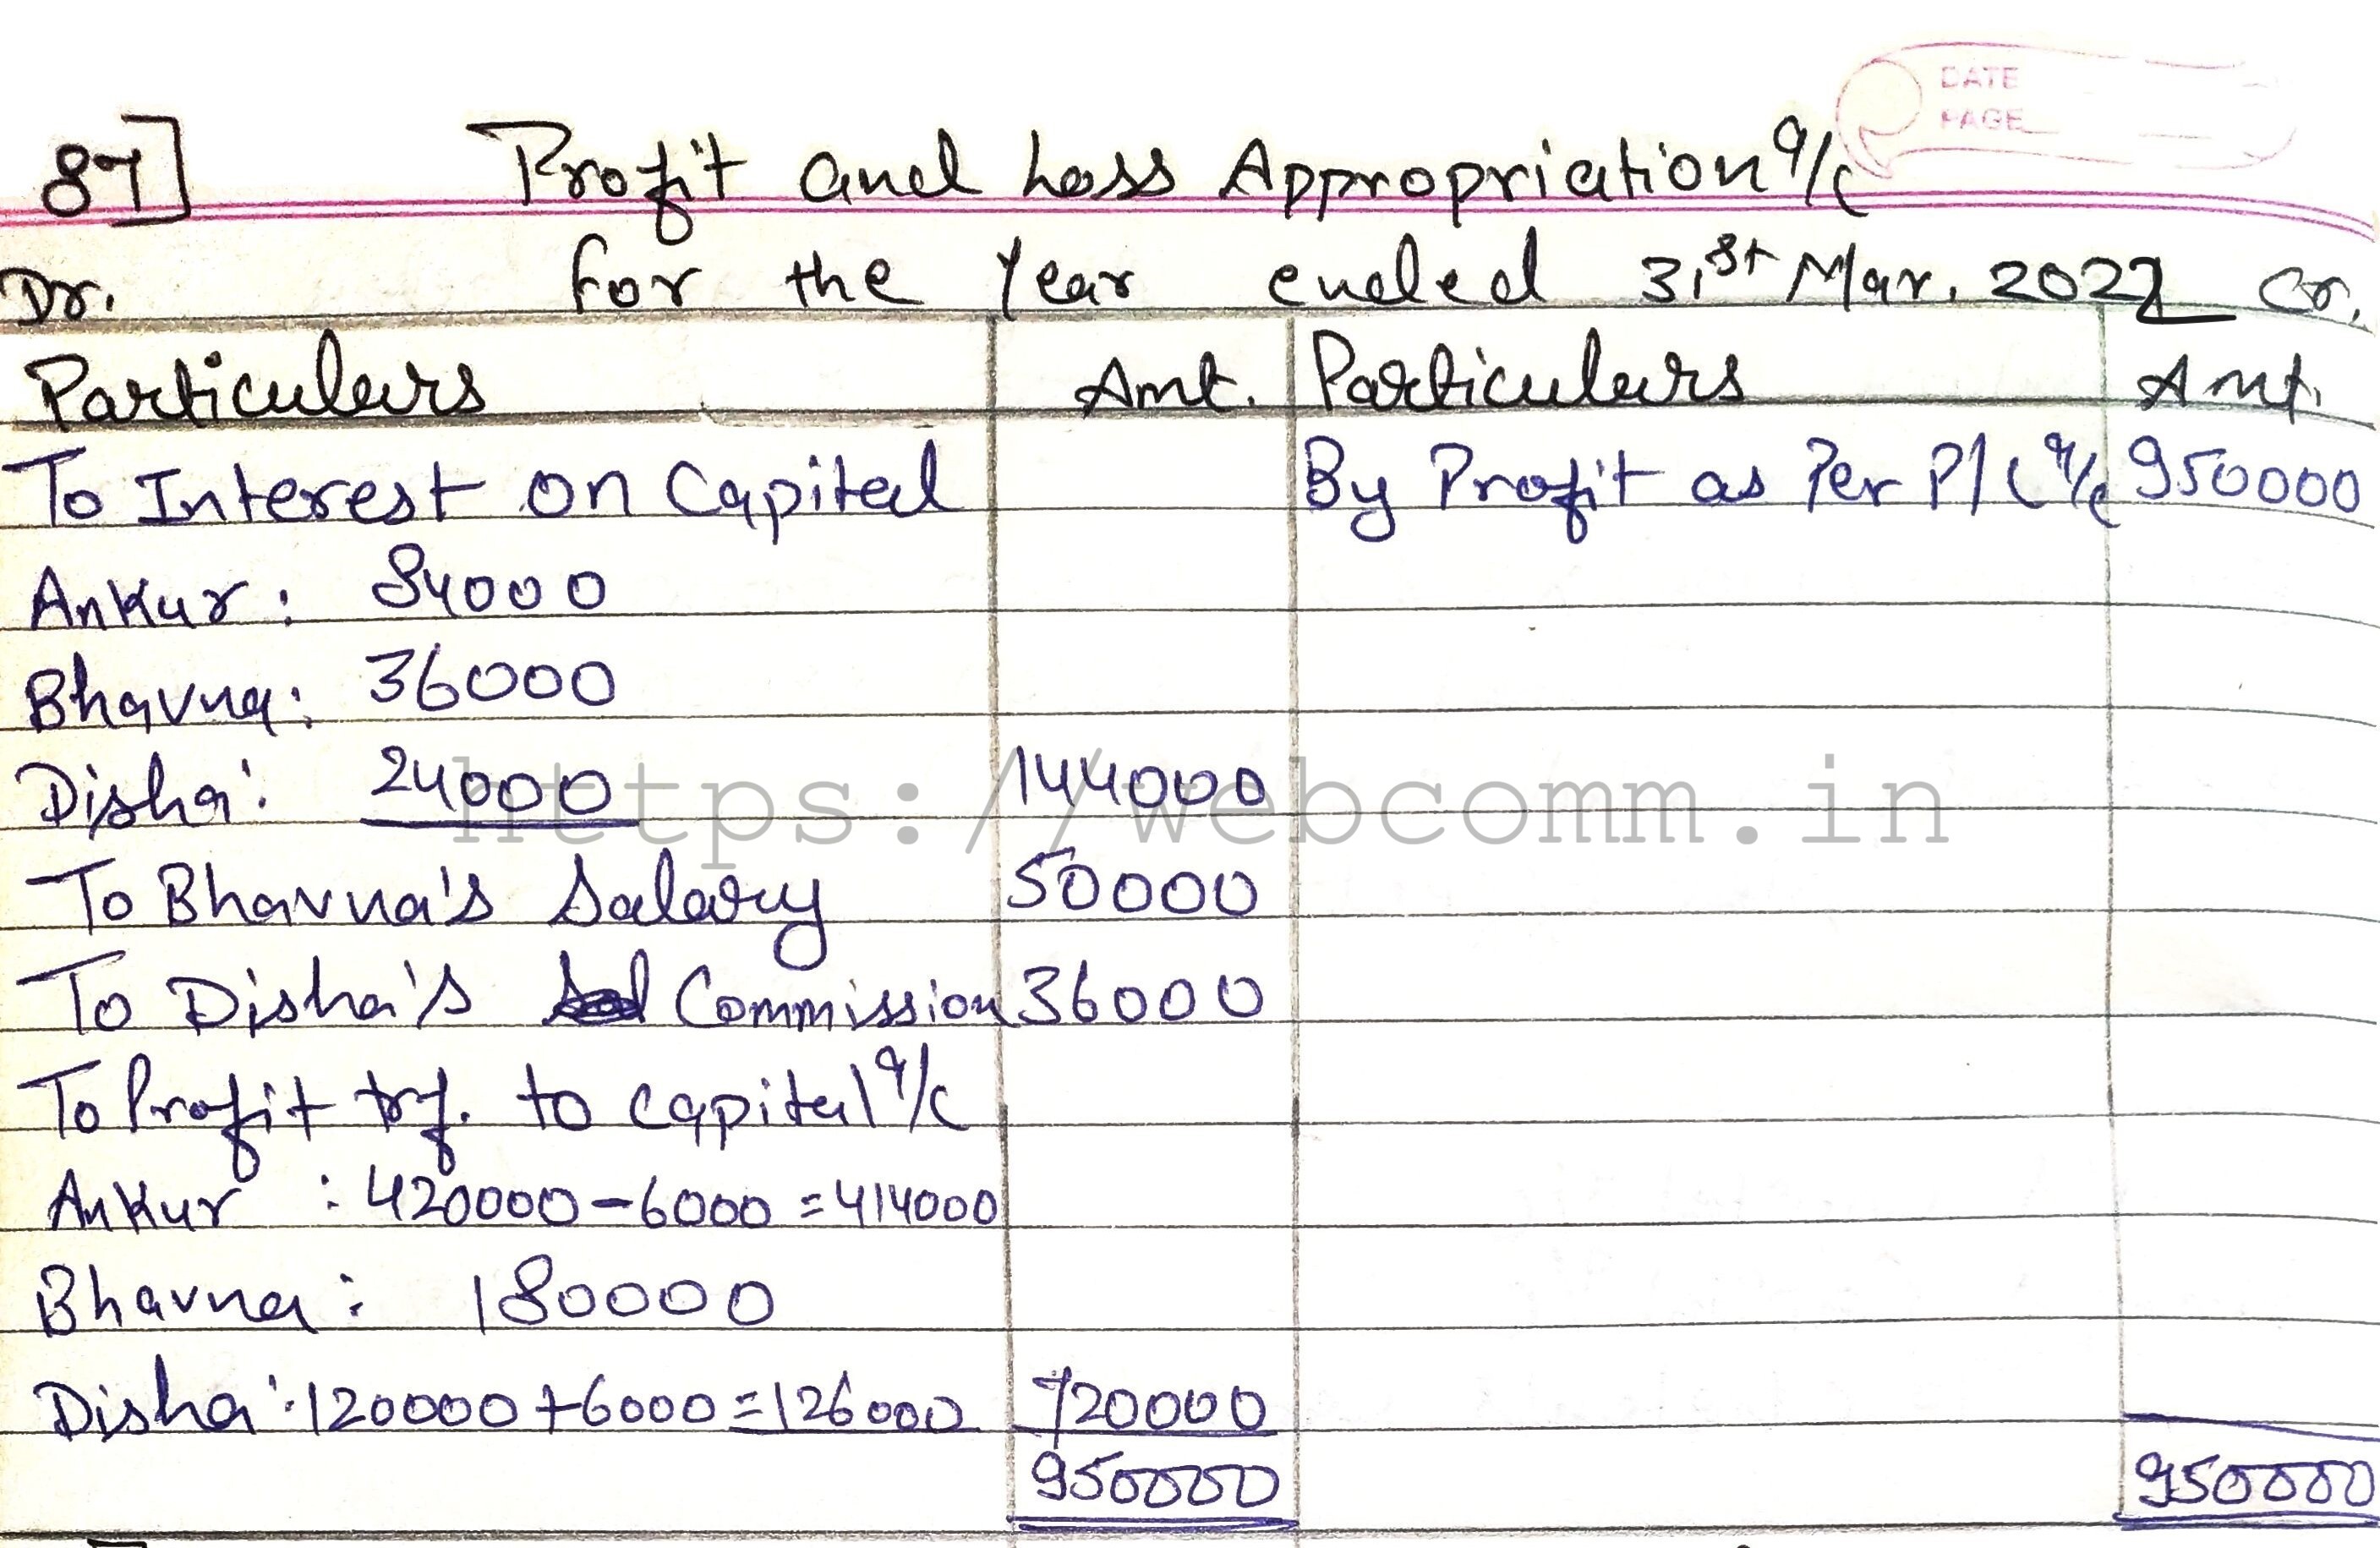 DATE
PAGE
87] Profit and Loss Appropriation a/c
Dr. for the Year ended 31st Mar. 2022 Cr.
Particulars Amt. Particulars Amt.
To Interest on Capital By Profit as Per P/L a/c 950000
Ankur: 84000
Bhavna: 36000
Disha: 24000 144000
https://webcomm.in
To Bhavna's Salary 50000
To Disha's Commission 36000
To Profit trf. to capital a/c
Ankur : 420000-6000=414000
Bhavna: 180000
Disha: 120000+6000=126000 720000
950000 950000